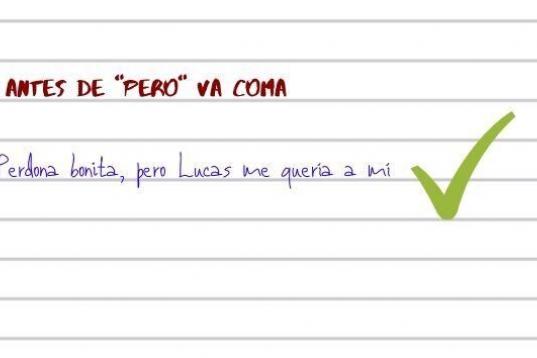 ANTES DE "PERO" VA COMA
Perdona bonita, pero Lucas me quería a mí